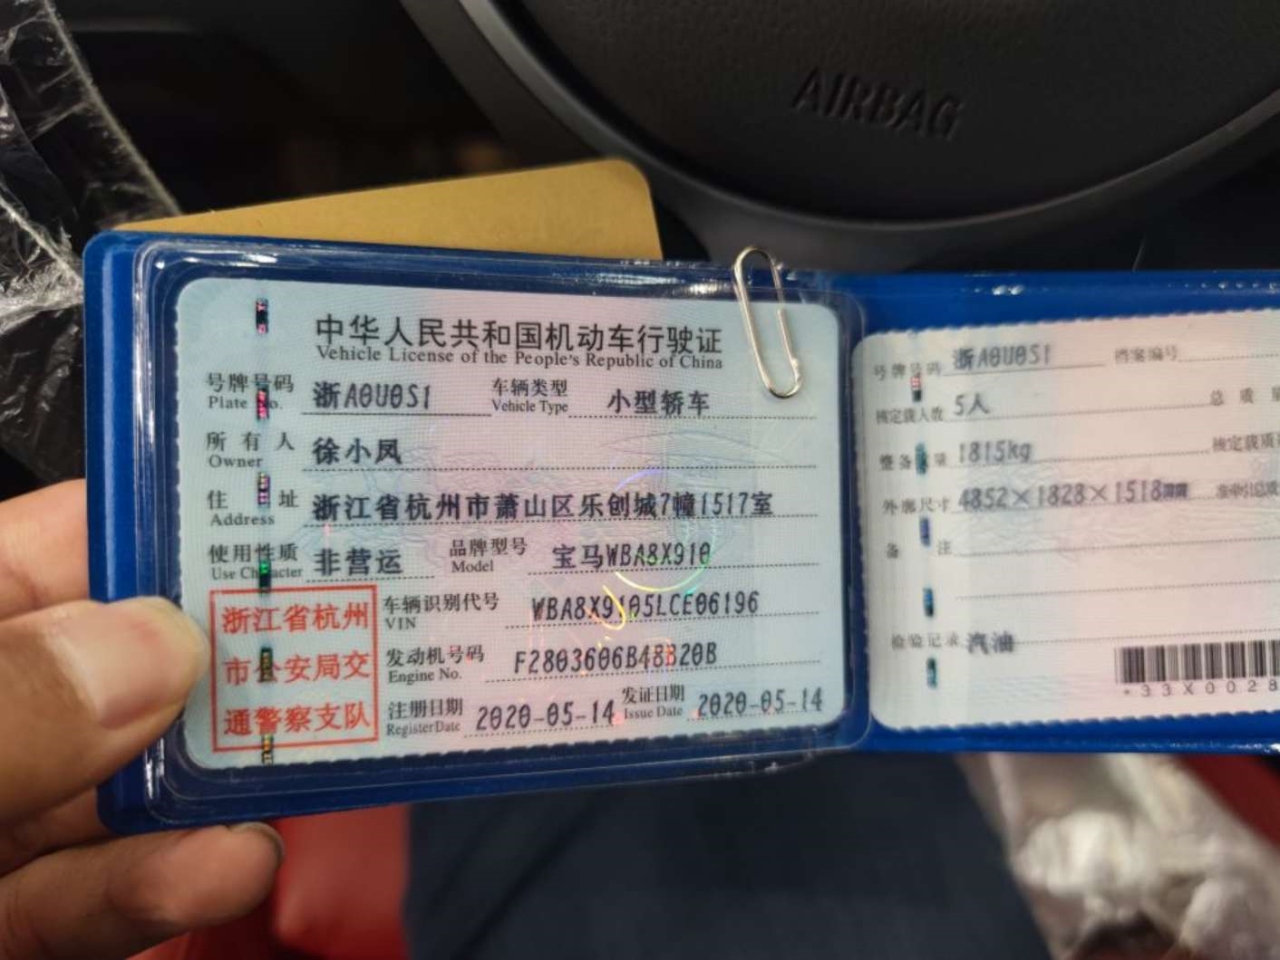 AIRBAG
中华人民共和国机动车行驶证
Vehicle License of the People's Republic of China
号牌号码 浙A0U0S1 车辆类型 小型轿车
Plate No. Vehicle Type
所有人 徐小凤
Owner
住址 浙江省杭州市萧山区乐创城7幢1517室
Address
使用性质 非营运 品牌型号 宝马WBA8X910
Use Character Model
浙江省杭州
市公安局交
通警察支队
车辆识别代号 WBA8X9105LCE06196
VIN
发动机号码 F2803606B48B20B
Engine No.
注册日期 2020-05-14 发证日期 2020-05-14
Register Date Issue Date
号牌号码 浙A0U0S1 档案编号
核定载人数 5人 总质
整备质量 1815kg 核定载质
外廓尺寸 4852×1828×1518 准牵引总质
备注
检验记录 汽油
*33X0028